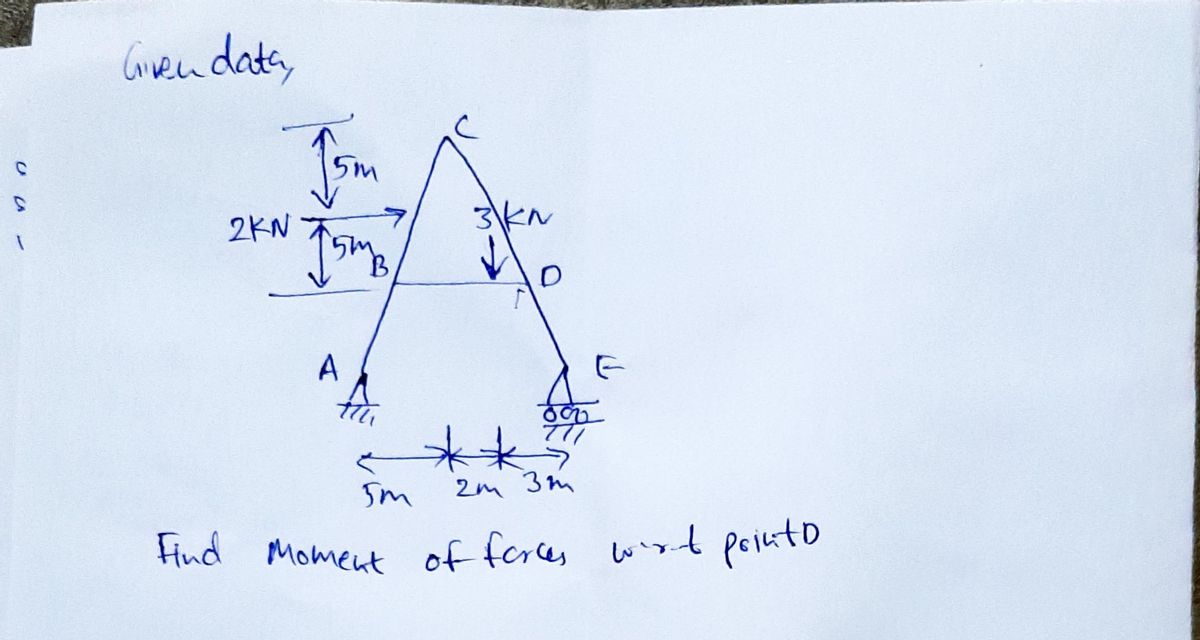 Given data,
C
5m
2KN
3 KN
5m
B
D
A
E
5m 2m 3m
Find Moment of forces w.r.t point D